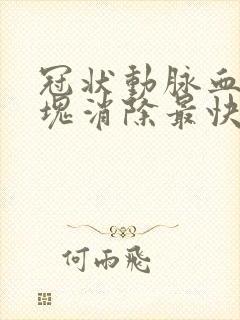 冠狀動脈血
塊消除最快
何雨飛